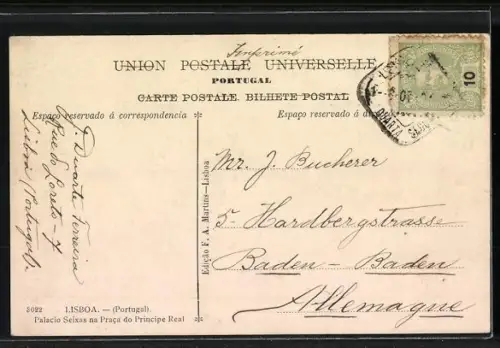 Imprimé
UNION POSTALE UNIVERSELLE
PORTUGAL
CARTE POSTALE. BILHETE POSTAL
Espaço reservado á correspondencia
Espaço reservado á
10
QUARTA SECÇ
J. Duarte Ferreira
Rua do Loreto - 7
Lisboa (Portugal).
Edição F. A. Martins - Lisboa
Mr. J. Bucherer
5- Hardbergstrasse
Baden - Baden
Allemagne
5022 LISBOA. — (Portugal).
Palacio Seixas na Praça do Principe Real